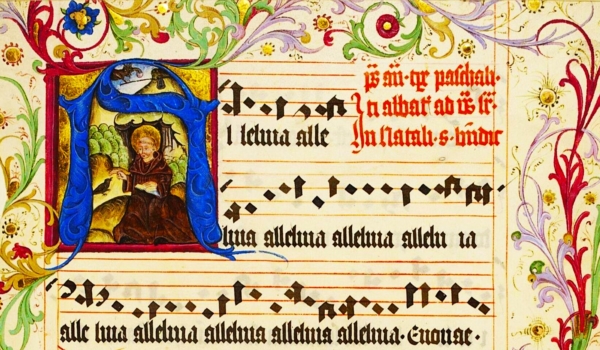 ps̄ añ. tp̄r paschali.
A l leluia alle
In albat ad vs̄ sr̄.
In Natali. s. bn̄dic
luia alleluia alleluia allelu ia
alle luia alleluia alleluia alleluia alleluia. Euouae.